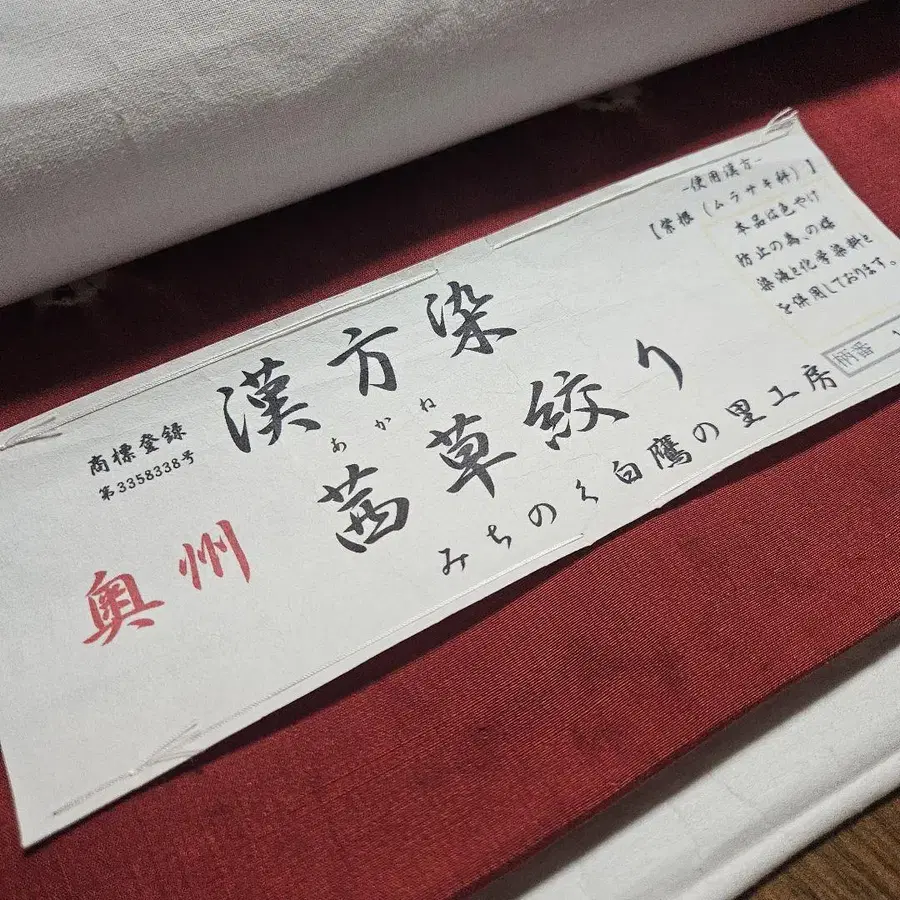 商標登録
第3358338号
奥州
漢方染
あかね
茜草絞り
みちのく白鷹の里工房
-使用漢方-
【紫根(ムラサキ科)】
本品は色やけ
防止の為、の媒
染液と化学染料と
を併用しております。
柄番 1